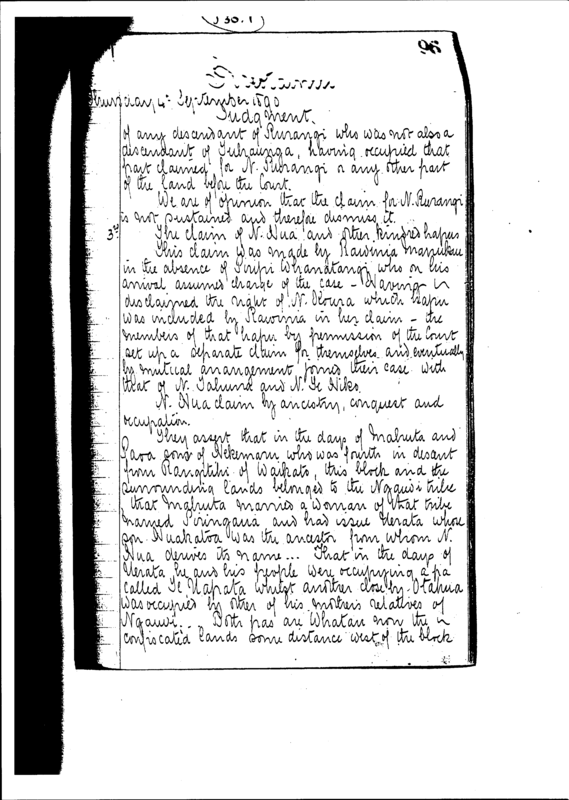 96
Thursday 4th September 1890
Judgment.
of any descendant of Rurangi who was not also a
descendant of Tuhraunga, having occupied that
part claimed for N. Rurangi or any other part
of the land before the Court.
We are of opinion that the claim for N. Rurangi
is not sustained and therefore dismiss it.
3rd The claim of N. Hua and other kindred hapus
This claim was made by Rawinia Manukau
in the absence of Piripi Whanatangi who on his
arrival assumed charge of the case - Having
disclaimed the right of N. which hapu
was included by Rawinia in her claim - the
members of that hapu by permission of the Court
set up a separate claim for themselves and eventually
by mutual arrangement joined their case with
that of N. Tahuna and N. Te Niko.
N. Hua claim by ancestry, conquest and
occupation.
They assert that in the days of Mahuta and
sons of Hekemaru who was fourth in descent
from of Waikato, this block and the
surrounding lands belonged to the Ngauwi tribe
that Mahuta married a woman of that tribe
named Piringaua and had issue Uerata whose
son Huakatoa was the ancestor from whom N.
Hua derives its name... That in the days of
Uerata he and his people were occupying a pa
called Te Uapata whilst another close by Otahua
was occupied by other of his mother's relatives of
Ngauwi... Both pas are Whatau now the
confiscated lands some distance west of the block